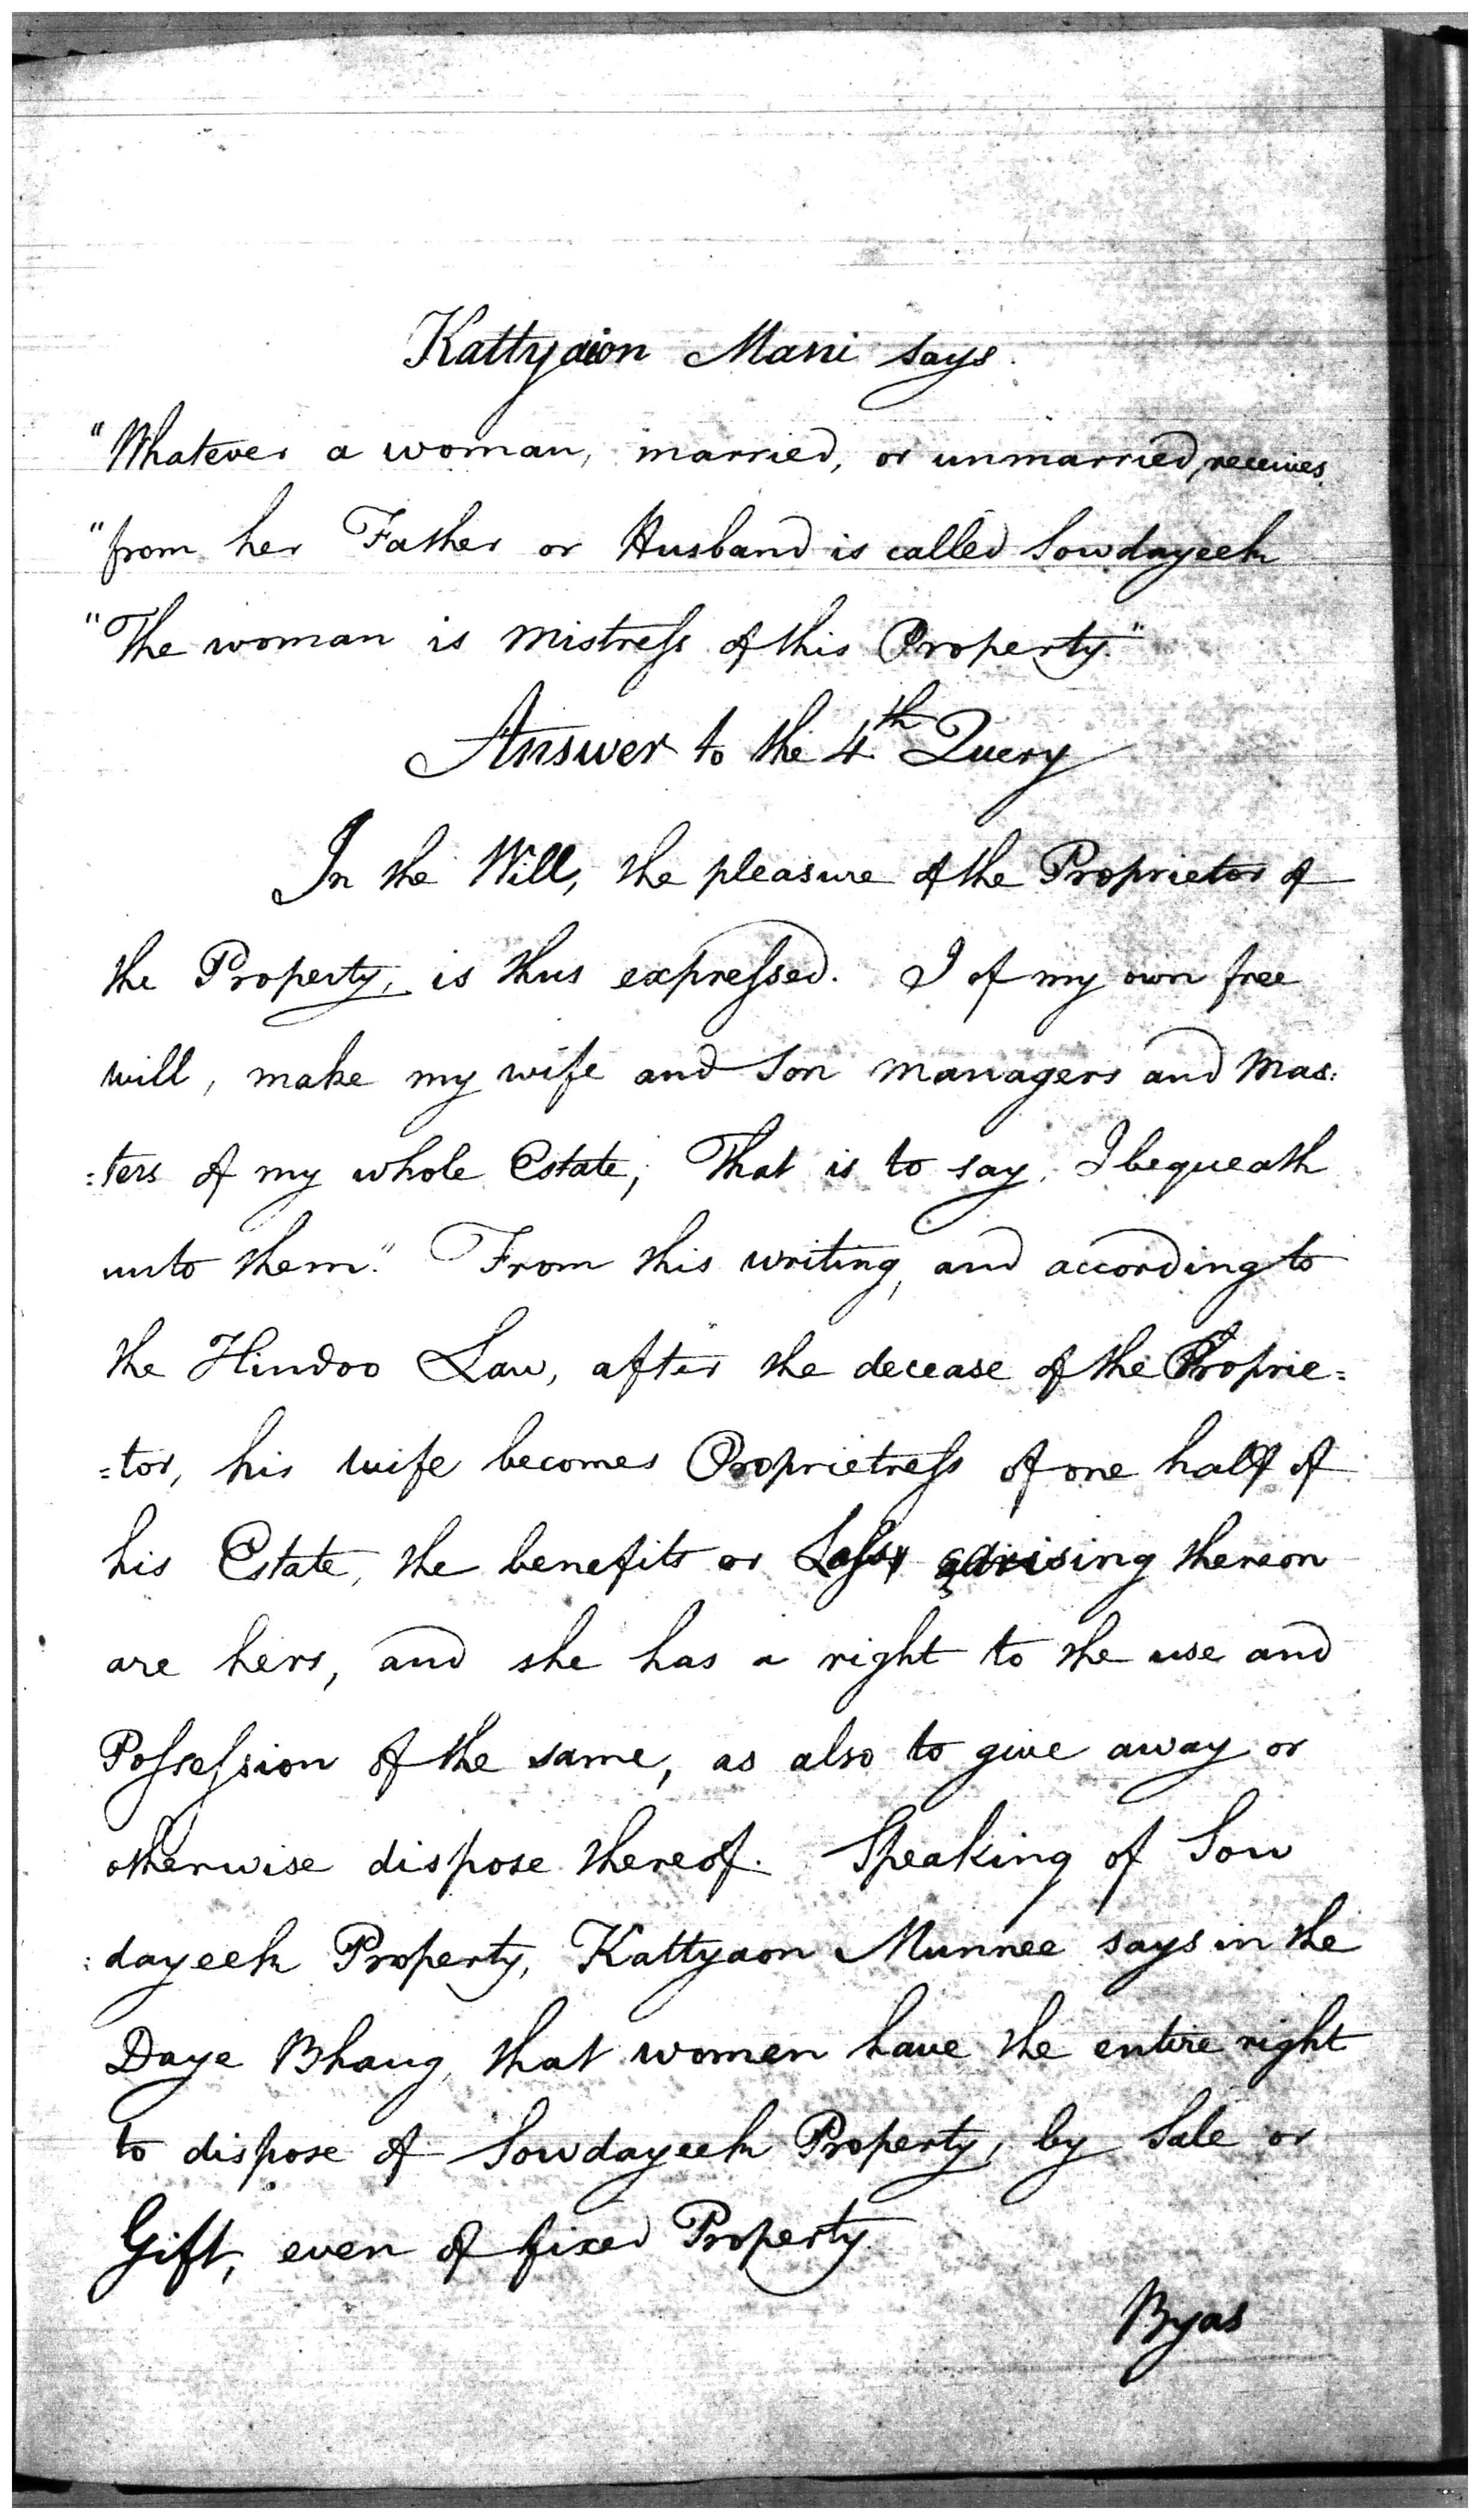 Kattyaion Mani says.
"Whatever a woman, married, or unmarried, receives
"from her Father or Husband is called Sowdayeek
"The woman is Mistress of this Property."
Answer to the 4th Query
In the Will, the pleasure of the Proprietor of
the Property, is thus expressed. I of my own free
will, make my wife and Son Managers and Mas:
:ters of my whole Estate; That is to say, I bequeath
unto them." From this writing, and according to
the Hindoo Law, after the decease of the Proprie=
=tor, his wife becomes Proprietress of one half of
his Estate, the benefits or Loss arising thereon
are hers, and she has a right to the use and
Possession of the same, as also to give away or
otherwise dispose thereof. Speaking of Sow
:dayeek Property, Kattyaon Munnee says in the
Daye Bhaug, that women have the entire right
to dispose of Sowdayeek Property, by Sale or
Gift, even of fixed Property.
Byas